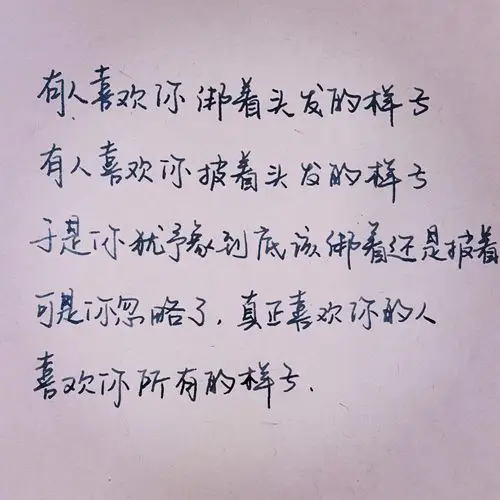 有人喜欢你绑着头发的样子
有人喜欢你披着头发的样子
于是你犹予象到底该绑着还是披着
可是你忽略了，真正喜欢你的人
喜欢你所有的样子.